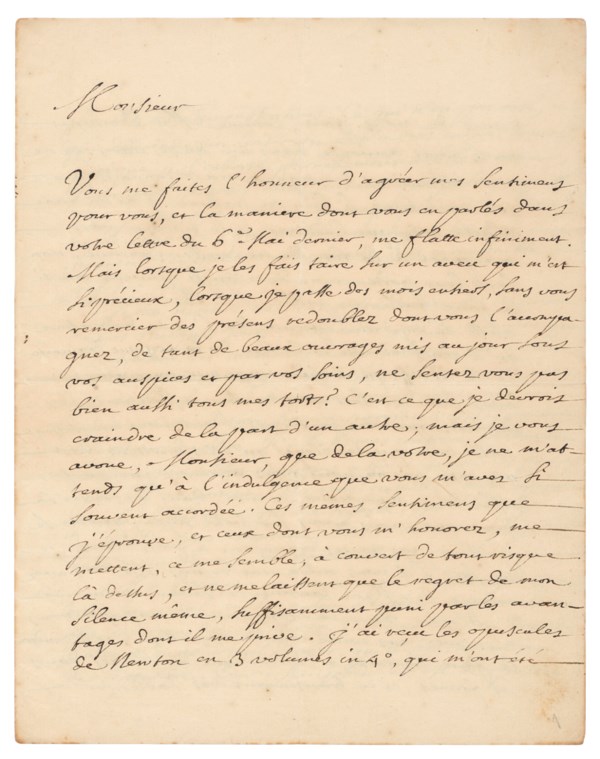 Monsieur
Vous me faites l'honneur d'agréer mes sentimens
pour vous, et la maniere dont vous en parlés dans
votre lettre du 6e Mai dernier, me flatte infiniment.
Mais lorsque je les fais taire sur un aveu qui m'est
si précieux, lorsque je passe des mois entiers, sans vous
remercier des présens redoublez dont vous l'accompa-
gnez, de tant de beaux ouvrages mis au jour sous
vos auspices et par vos soins, ne sentez vous pas
bien aussi tous mes torts? C'est ce que je devrois
craindre de la part d'un autre; mais je vous
avoue, Monsieur, que de la votre, je ne m'at-
tends qu'à l'indulgence que vous m'avez si
souvent accordée. Ces mêmes sentimens que
j'éprouve, et ceux dont vous m'honorez, me
mettent, ce me semble, à couvert de tout risque
là dessus, et ne me laissent que le regret de mon
silence même, suffisamment puni par les avan-
tages dont il me prive. J'ai reçu les opuscules
de Newton en 3 volumes in 4°, qui m'ont été
1